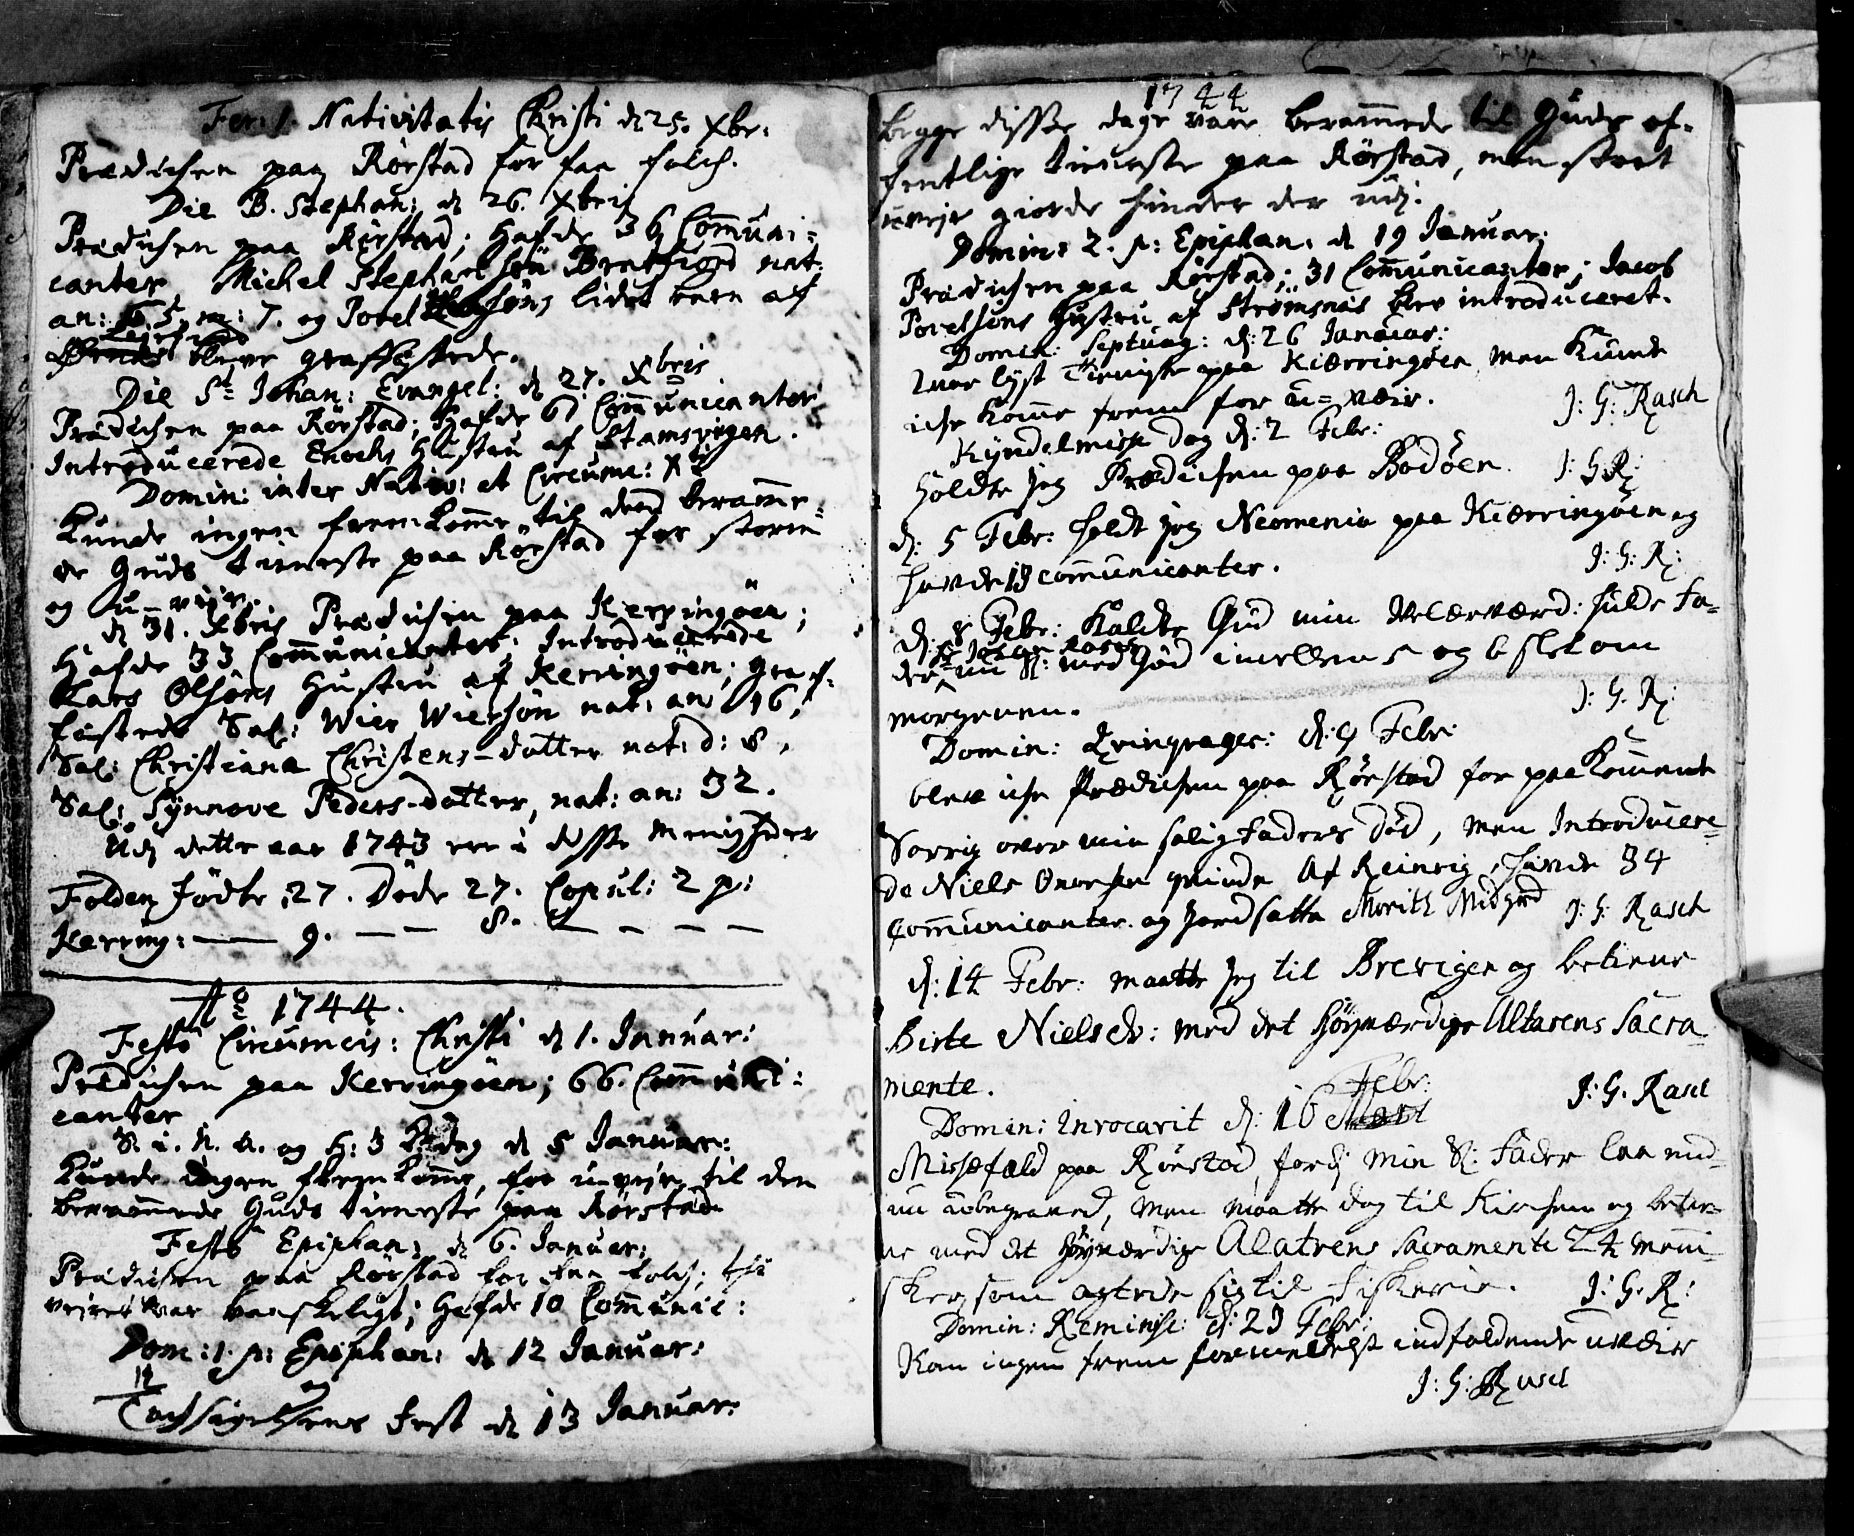 Fer: 1. Nativitatis Christi d 25. Xbr:
Prædichen paa Rörstad for faa folch.
Die B. Stephan: d 26. Xbris
Prædichen paa Rörstad; Hafde 36 Communi-
canter Michel Stephanssön Bratfiord nat:
an: 65, m: 7. og Povel söns lidet barn af
bleve graffæstede.
Die St Johan: Evangel: d 27. Xbris
Prædichen paa Rörstad; Hafde 60 Communicanter
Introducerede Enochs Hustru af Stamsvigen.
Domin: inter Nativ: et Circumc: Xti
Kunde ingen fremkomme til dend beramme-
de Guds tieneste paa Rörstad for storm
og u-vejr.
d 31. Xbris Prædichen paa Kerringöen;
Hafde 33 Communicanter; Introducerede
Lars Olsöns Hustru af Kerringöen; graf-
fæstede Sal: Wier Wiersön nat: an: 46,
Sal: Christiana Christens-datter nat: d: 8,
Sal: Synnove Peders-datter, nat: an: 32.
Udj dette aar 1743 ere i disse Menigheder
Folden födte 27. Döde 27. Copul: 2 p:
Kerring: — 9. — — 8. — — — —
Ao 1744.
Festo Circumcis: Christi d 1. Januar:
Prædichen paa Kerringöen; 66. Communi-
canter
S. i. N. A. og H: 3 K: dag d 5 Januar:
Kunde ingen fremkomme, for u-vejr, til den
berammede Guds tieneste paa Rörstad
Festo Epiphan: d 6. Januar:
Prædichen paa Rörstad for faa folch; thi
vejret var vanskeligt; Hafde 10 Communic:
Dom: 1. p: Epiphan: d 12 Januar:
og
Tachsigelsens Fest d 13 Januar:
1744
begge disse dage vare berammede til Guds of-
fentlige tieneste paa Rörstad, men stort
uvejr giorde hinder der udj.
Domin: 2. p: Epiphan: d 19 Januar:
Prædichen paa Rörstad; 31 Communicanter; Jacob
Povelsöns Hustru af Strömsnæs blev introduceret.
Domin: Septuag: d: 26 Januar:
var lyst Tieniste paa Kiærringöen men kunde
iche komme frem for u-væir. J: G: Rasch
Kyndelmisse dag d: 2 Febr:
holdte jeg Prædichen paa Bodöen. J: G R:
d: 5 Febr: holdt jeg Neomenia paa Kiærringöen og
havde 19 communicanter. J: G: R:
d: 8 Febr: kaldte Gud min Velærværd: hulde Fa-
Hr Johan Rasch
der nu S: med Död imellem 5 og 6 slet om
morgenen. J: G. R:
Domin: Qvinqvages: d: 9 Febr:
blev iche Prædichen paa Rörstad for paakommende
Sorrig over min salig Faders död, men Introducere-
de Niels qvinde Af Reinvig, havde 34
Communicanter. og jordsatte Morith Midgrd J: G: Rasch
d: 14 Febr: maatte jeg til Brevigen og betiene
Birte Nielsd: med det Höyværdige Altarens Sacra-
mente. J: G. Rasch
Febr:
Domin: Invocavit d: 16
Missefald paa Rörstad, fordj min S: Fader laa end-
nu ubegraved, men maatte dog til Kirchen og betie-
ne med det höyværdige Alatrens Sacramente 24 menni-
sker, som agtede sig til Fiskerie. J: G. R:
Domin: Reminisc: d: 23 Febr:
Kom ingen frem formedelst indfaldende uvæir
J: G: Rasch